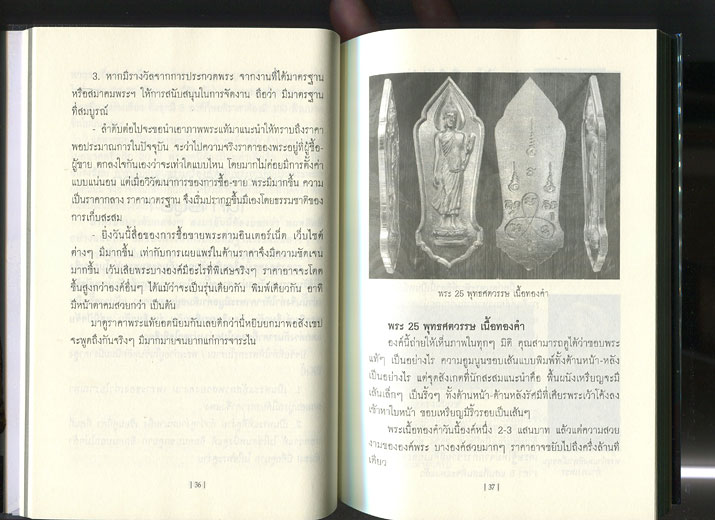 3. หากมีรางวัลจากการประกวดพระ จากงานที่ได้มาตรฐาน
หรือสมาคมพระฯ ให้การสนับสนุนในการจัดงาน ถือว่า มีมาตรฐาน
ที่สมบูรณ์
- ลำดับต่อไปจะขอนำเอาภาพพระแท้มาแนะนำให้ทราบถึงราคา
พอประมาณการในปัจจุบัน จะว่าไปความจริงราคาของพระอยู่ที่ผู้ซื้อ-
ผู้ขาย ตกลงใจกันเองว่าจะเท่าใดแบบไหน โดยมากไม่ค่อยมีการตั้งค่า
แบบแน่นอน แต่เมื่อวิวัฒนาการของการซื้อ-ขาย พระมีมากขึ้น ความ
เป็นราคากลาง ราคามาตรฐาน จึงเริ่มปรากฏขึ้นมีเองโดยธรรมชาติของ
การเก็บสะสม
- ยิ่งวันนี้สื่อของการซื้อขายพระตามอินเตอร์เน็ต เว็บไซค์
ต่างๆ มีมากขึ้น เท่ากับการเผยแพร่ในด้านราคาจึงมีความชัดเจน
มากขึ้น เว้นเสียพระบางองค์มีอะไรที่พิเศษจริงๆ ราคาอาจจะโดด
ขึ้นสูงกว่าองค์อื่นๆ ได้แม้ว่าจะเป็นรุ่นเดียวกัน พิมพ์เดียวกัน อาทิ
มีหน้าตาคมสวยกว่า เป็นต้น
มาดูราคาพระแท้ยอดนิยมกันเลยดีกว่านี่หยิบยกมาพอสังเขป
จะพูดถึงกันจริงๆ มีมากมายจนยากแก่การจาระไน
| 36 |
พระ 25 พุทธศตวรรษ เนื้อทองคำ
พระ 25 พุทธศตวรรษ เนื้อทองคำ
องค์นี้ถ่ายให้เห็นภาพในทุกๆ มิติ คุณสามารถดูได้ว่าขอบพระ
แท้ๆ เป็นอย่างไร ความอูมนูนขอบเส้นแบบพิมพ์ทั้งด้านหน้า-หลัง
เป็นอย่างไร แต่จุดสังเกตที่นักสะสมแนะนำคือ พื้นผนังเหรียญจะมี
เส้นเล็กๆ เป็นริ้วๆ ทั้งด้านหน้า-ด้านหลังรัศมีที่เศียรพระเว้าโค้งลง
เข้าหาใบหน้า ขอบเหรียญมีริ้วรอยเป็นเส้นๆ
พระเนื้อทองคำวันนี้องค์หนึ่ง 2-3 แสนบาท แล้วแต่ความสวย
งามขององค์พระ บางองค์สวยมากๆ ราคาอาจขยับไปถึงครึ่งล้านที
เดียว
| 37 |